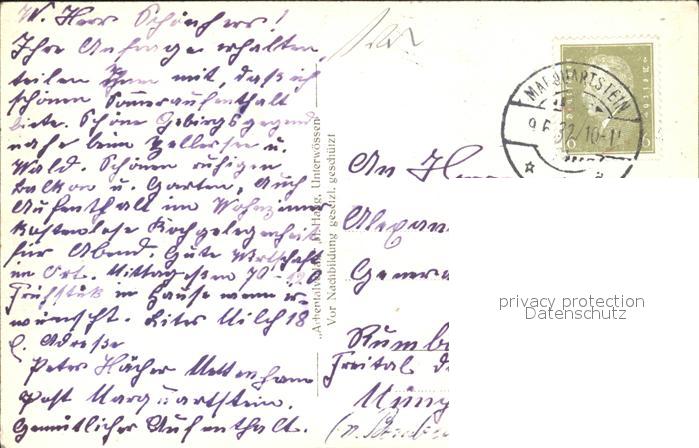 W. Herr Schöncherr!
Ihre Anfrage erhalten,
teilen Ihnen mit, daß ich
schönen Sommeraufenthalt
biete. Schöne Gebirgsgegend
nahe beim Zellersee u.
Wald. Schönen ruhigen
Balkon u. Garten, Auch
Aufenthalt im Wohnzimmer
kostenlose Kochgelegenheit
für Abend. Gute Wirtschaft
im Ort. Mittagessen 70-120
Frühstück im Hause wenn er-
wünscht. Liter Milch 18
₰. Adreße
Peter Hächer Mettenham
Post Marquartstein.
Gemütlicher Aufenthalt.
"Achentalverlag" Haag, Unterwössen
Vor Nachbildung gesetzl. geschützt
MARQUARTSTEIN
9.6.32.10-11
6 6
An H
Alexan
Genera
Rumb
Freital
privacy protection
Datenschutz